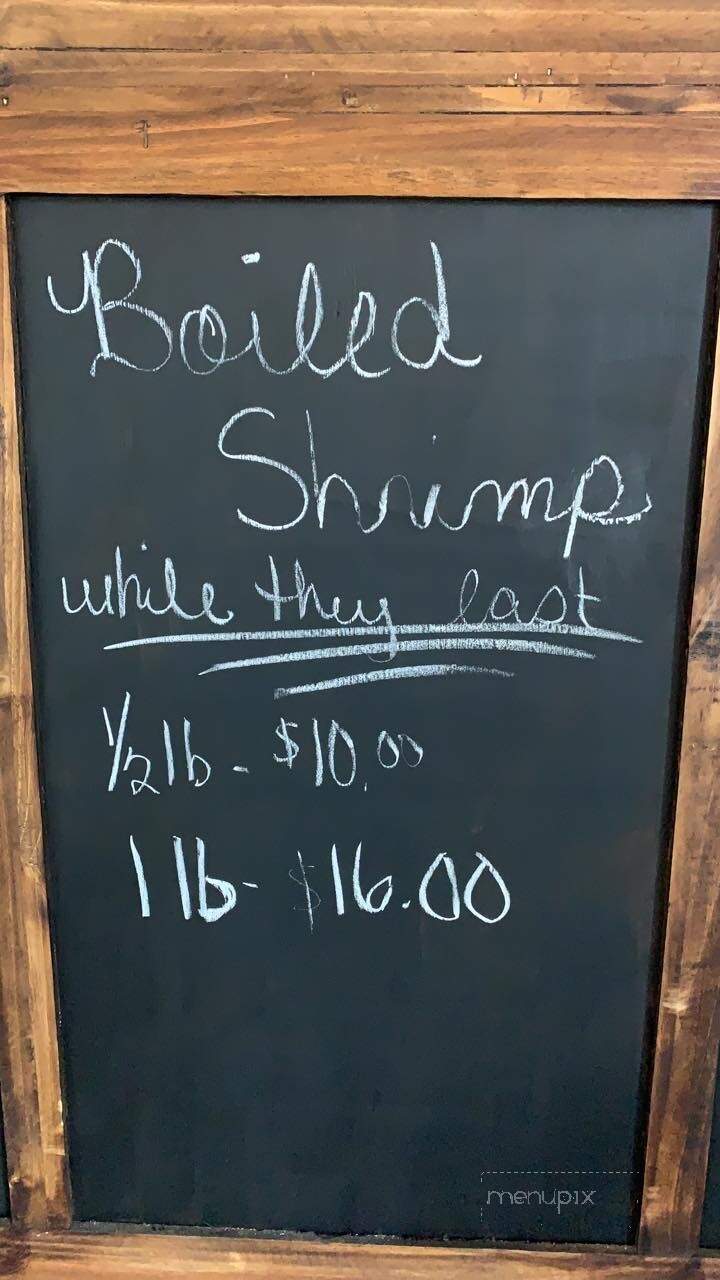 Boiled
Shrimp
while they last
1/2 lb - $10.00
1 lb - $16.00
menupix